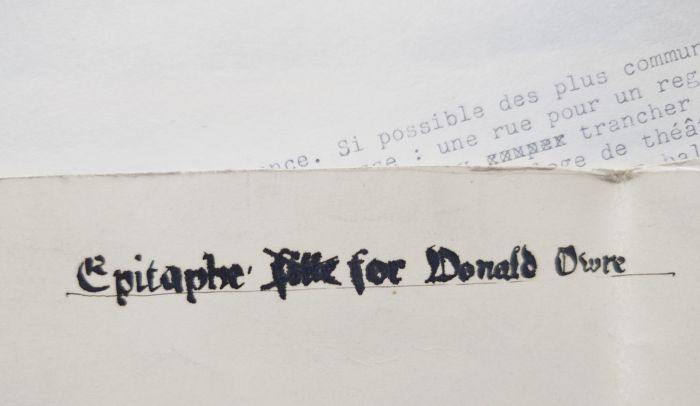 nce. Si possible des plus commun
se : une rue pour un reg
trancher
ge de théât
bal
Epitaphe' for Donald Owre